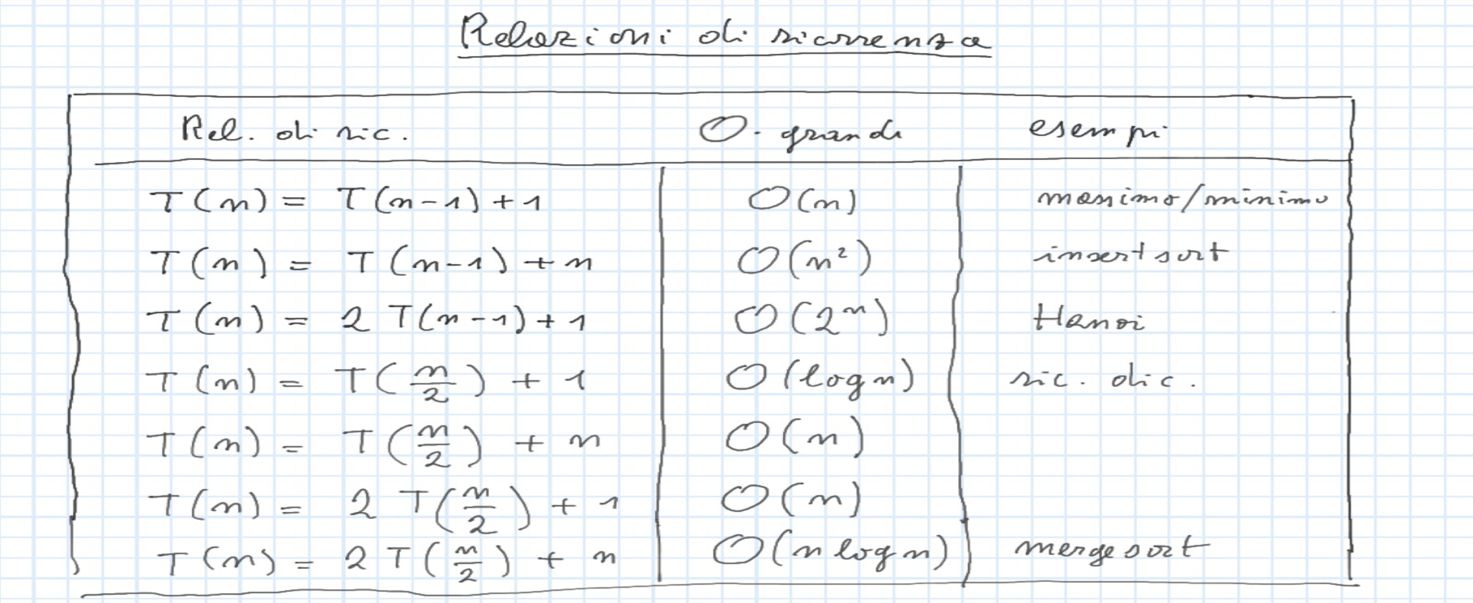 Relazioni di ricorrenza
Rel. di ric. O-grande esempi
T(n) = T(n-1) + 1 O(n) massimo/minimo
T(n) = T(n-1) + n O(n²) insert sort
T(n) = 2 T(n-1) + 1 O(2ⁿ) Hanoi
T(n) = T(n/2) + 1 O(log n) ric. dic.
T(n) = T(n/2) + n O(n)
T(n) = 2 T(n/2) + 1 O(n)
T(n) = 2 T(n/2) + n O(n log n) merge sort